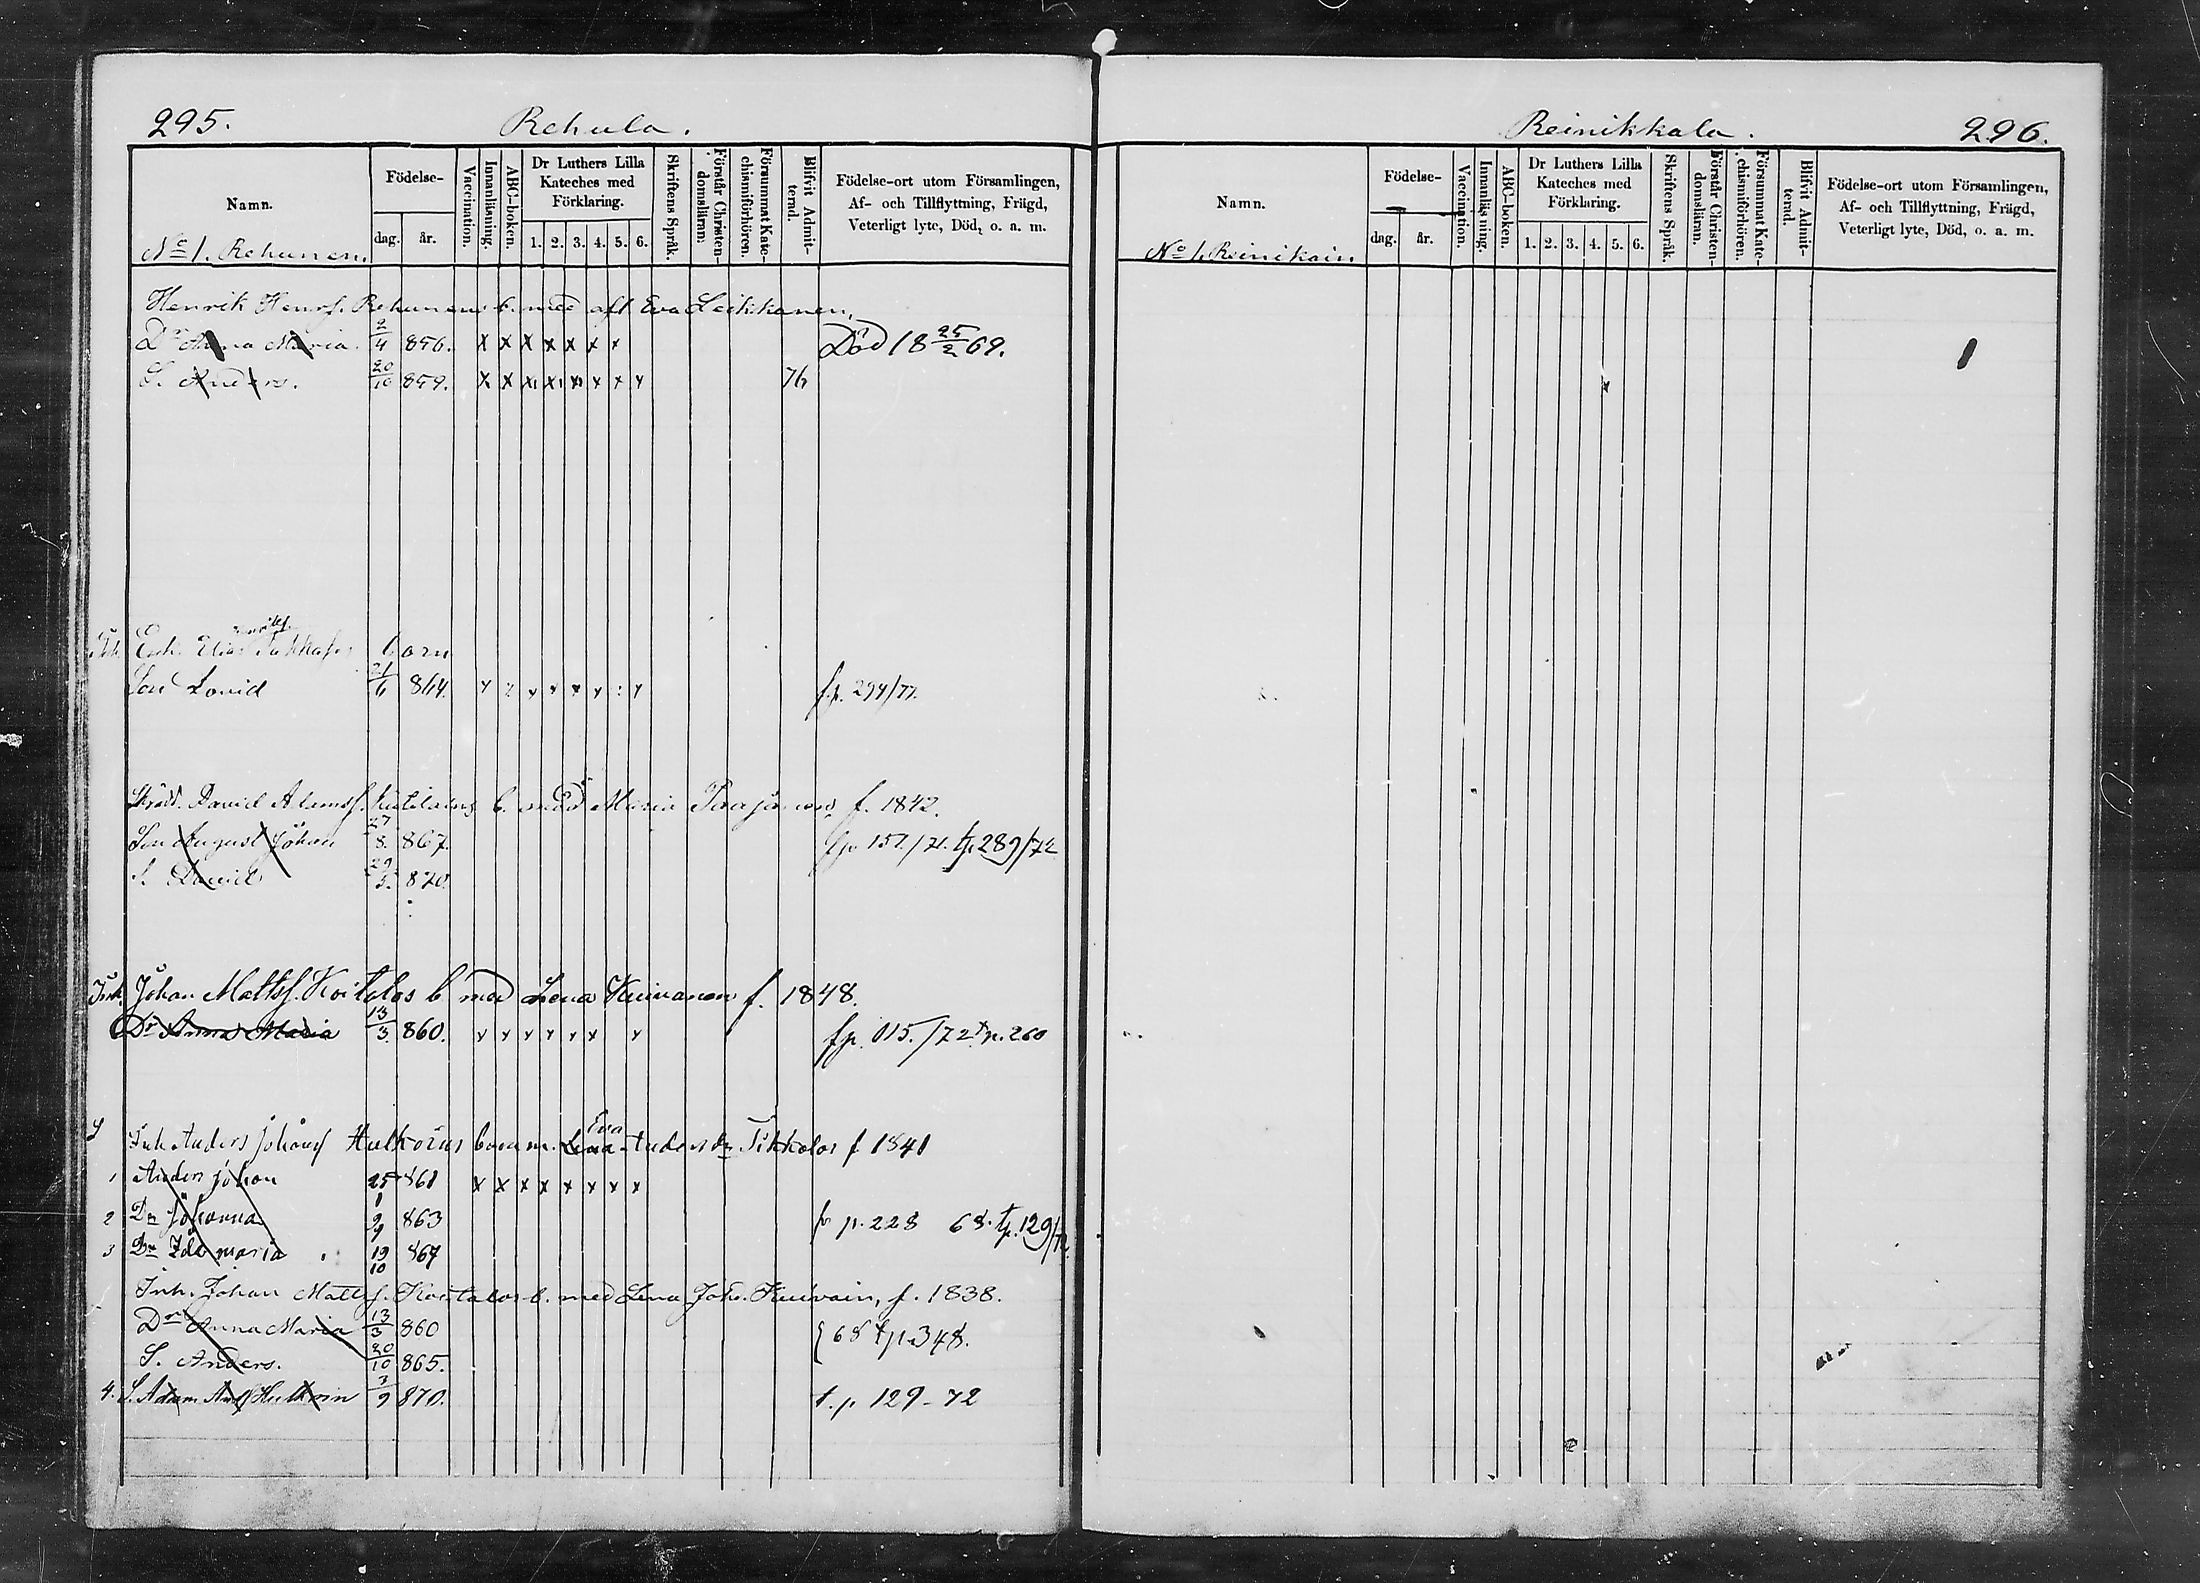 295. Rehula.
Namn. Födelse- dag. år. Vaccination. Innanläsning. ABC-boken. Dr Luthers Lilla Kateches med Förklaring. 1. 2. 3. 4. 5. 6. Skriftens Språk. Förstår Christendomsläran. Försummat Katechismiförhören. Blifvit Admitterad. Födelse-ort utom Församlingen, Af- och Tillflyttning, Frägd, Veterligt lyte, Död, o. a. m.
No 1. Rehunen.
Henrik Henrs. Rehunens b. med afl Eva Leikkanen.
Dr Anna Maria. 2/4 856. x x x x x x x Död 18 25/2 69.
S. Anders. 20/10 859. x x x x x x x x 76
Enk. Elias barn
Son David 21/6 864. f.p. 294/77.
David Adamss. b. med Maria Paajanen f. 1842.
Son August Johan 27/8. 867. fp 151/71. tp. 289/72
S. David 29/3. 870.
Inh. Johan Mattss. Koitalas b med Lena Kuivanen f. 1848.
Dr Anna Maria 13/3. 860. fp. 115./72 tp. 260
Inh Anders Johans Hulkoins barn m. Eva Lena Andersdr Tikkalas f 1841
1 Anders Johan 25/1 861 x x x x x x x x
2 Dr Johanna 2/9 863 fr p. 228 68. tp. 129/72.
3 Dr Ida maria 19/10 867
Inh. Johan Matts. Koitalas b. med Lena Johs. Kuivain, f. 1838.
Dr Anna Maria 13/3 860 { 68 tp. 348.
S. Anders. 20/10 865.
4. S. Adam And Hulkoin 3/9 870. t. p 129-72
Reinikkala. 296.
Namn. Födelse- dag. år. Vaccination. Innanläsning. ABC-boken. Dr Luthers Lilla Kateches med Förklaring. 1. 2. 3. 4. 5. 6. Skriftens Språk. Förstår Christendomsläran. Försummat Katechismiförhören. Blifvit Admitterad. Födelse-ort utom Församlingen, Af- och Tillflyttning, Frägd, Veterligt lyte, Död, o. a. m.
No 1. Reinikain.